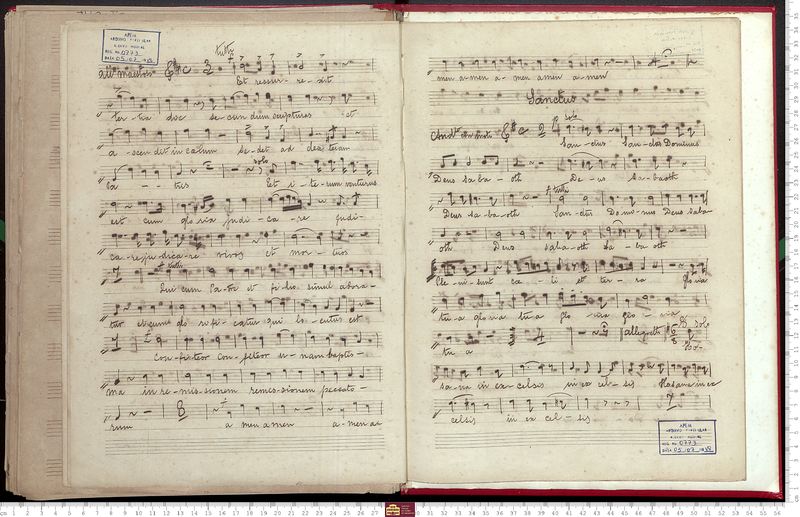 tutti
all.º maestoso Et ressur - re - xit
ter - tia die se - cun dum scripturas et
a - scen det in cœlum se - det ad dex teram
solo
Pa - - tris Et i - te - rum venturus
est cum glo ria judi - ca - re judi -
ca - re judica - re vivos et mor - tuos
tutti
Qui cum Pa - tre et fi - lio simul adora -
tur et cunglo rifi - catur qui lo - cutus est
con - fi teor con - fiteor u - nam baptis -
ma in re - mis - sionem remis - sionem peccato -
rum a men amen a - men a
men a - men a - men amen a - men
Sanctus
solo
San - ctus San - ctus Dominus
Deus sa ba - oth De - us Sa - baoth
f tutti
Deus sa - ba - oth San - ctus Do mi - nus Deus saba -
oth Deus saba - oth sa - ba oth
Ple - ni - sunt cœ - li et ter - ra glo ria
tu - a glo ria tu a glo - ria glo - ria
tu a allegretto solo Ho -
sa - na in ex - celsis in ex cel - sis Hosana in ex
celsis in ex cel - sis
APMIA
REG. No. 0773
DATA 05/07